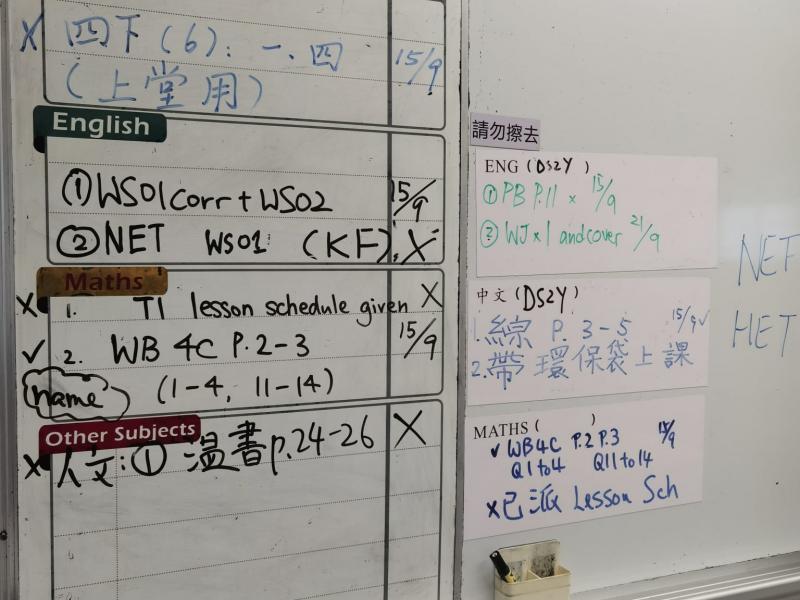 x 四下(6): 一.四 15/9
(上堂用)
English
① WS01 corr + WS02 15/9
② NET WS01 (KF). X
Maths
X 1. T1 lesson schedule given X
✓ 2. WB 4C P.2-3 15/9
name (1-4, 11-14)
Other Subjects
X 人文:① 溫書p.24-26 X
請勿擦去
ENG (DS2Y)
① PB P.11 x 15/9
② WJ x 1 and cover 21/9
中文 (DS2Y)
1.綜 P. 3-5 15/9 ✓
2.帶環保袋上課
MATHS ( )
✓ WB4C P.2 P.3 15/9
Q1to4 Q11to14
x已派 Lesson Sch
NET
HET